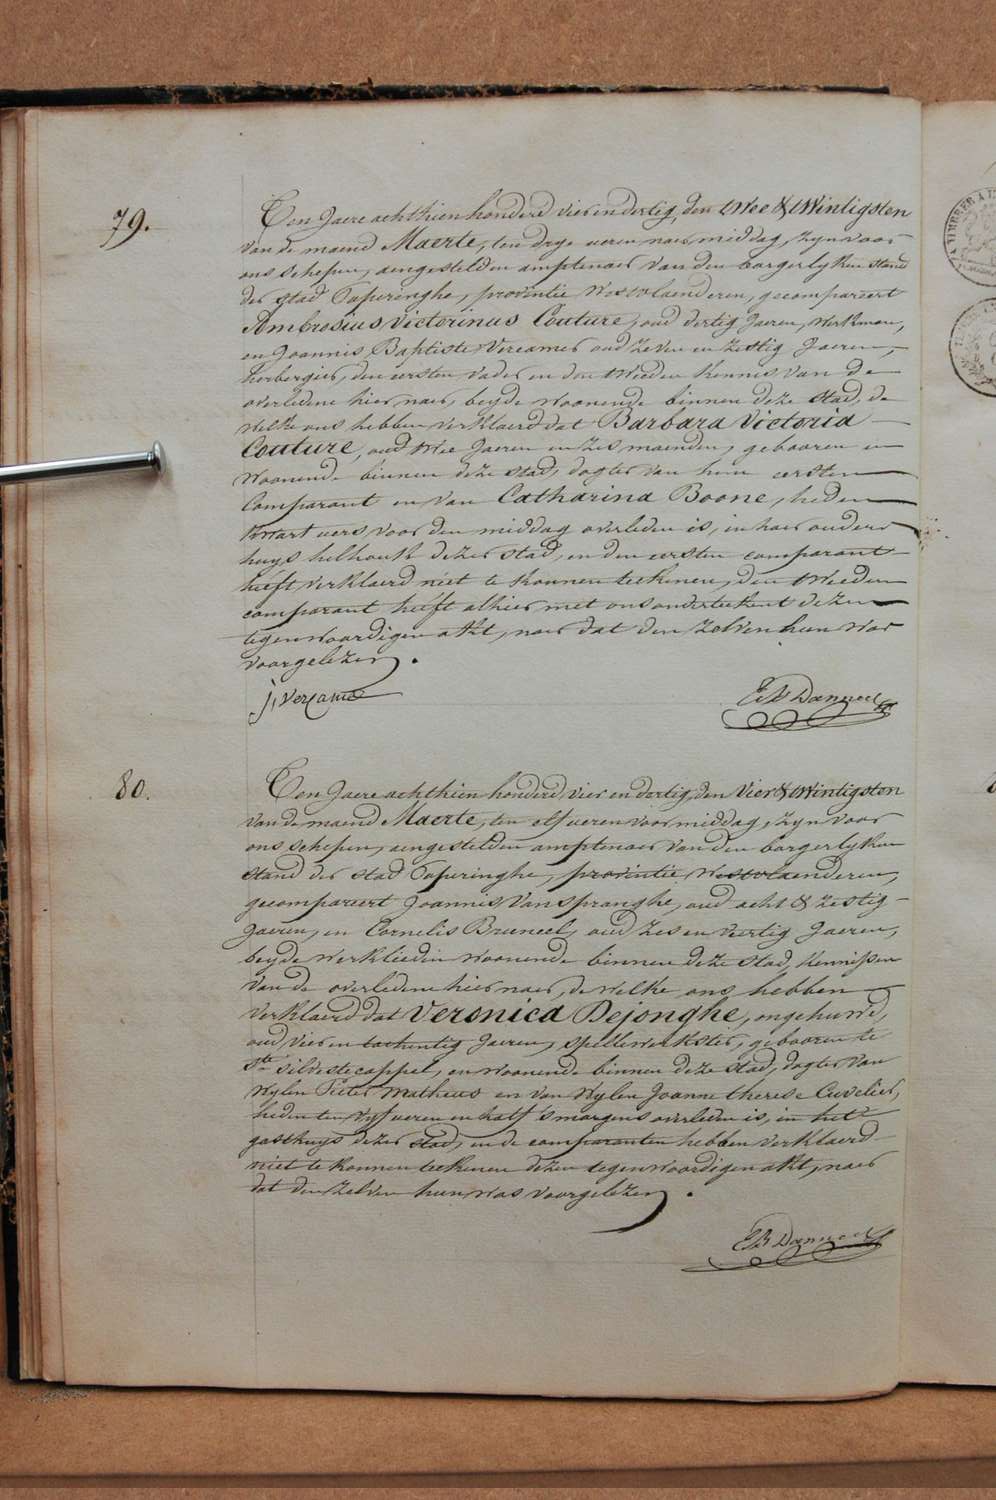 79.
Ten Jaere achthien honderd vier en dertig, den twee & twintigsten
van de maend Maerte, ten drye ueren naer middag, zyn voor
ons schepen, aengestelden amptenaer van den borgerlyken stand
der stad Poperinghe, provintie Westvlaenderen, gecompareert
Ambrosius Victorinus Couture, oud dertig Jaeren, werkman,
en Joannis Baptiste Vercamer oud zeven en zestig Jaeren,
herbergier, den eersten vader en den tweeden kennis van de
overledene hier naer, beyde woonende binnen deze stad, de
welke ons hebben verklaerd dat Barbara Victoria
Couture, oud twee Jaeren en zes maenden, gebooren en
woonende binnen deze stad, dogter van hem eersten
Comparant en van Catharina Boone, heden
kwart uers voor den middag overleden is, in haer ouders
huys helhoek dezer stad, en den eersten comparant
heeft verklaerd niet te konnen teekenen, den tweeden
comparant heeft alhier met ons onderteekent dezen
tegenwoordigen akt, naer dat den zelven hun was
voorgelezen.
80.
Ten Jaere achthien honderd vier en dertig, den vier & twintigsten
van de maend Maerte, ten elf ueren voormiddag, zyn voor
ons schepen, aengestelden amptenaer van den borgerlyken
stand der stad Poperinghe, provintie Westvlaenderen,
gecompareert Joannis Vanspranghe, oud acht & zestig
Jaeren, en Cornelis Bruneel, oud zes en veertig Jaeren,
beyde werklieden woonende binnen deze stad, kennissen
van de overledene hier naer, de welke ons hebben
verklaerd dat Veronica Dejonghe, ongehuwd,
oud vier en tachentig Jaeren, spellewerkster, gebooren te
Ste. Silvestecappel, en woonende binnen deze stad, dogter van
wylen Pieter Matheus en van wylen Joanne therese Cuvelier,
heden ten vyf ueren en half 's morgens overleden is, in het
gasthuys dezer stad, en de comparanten hebben verklaerd
niet te konnen teekenen dezen tegenwoordigen akt, naer
dat den zelven hun was voorgelezen.